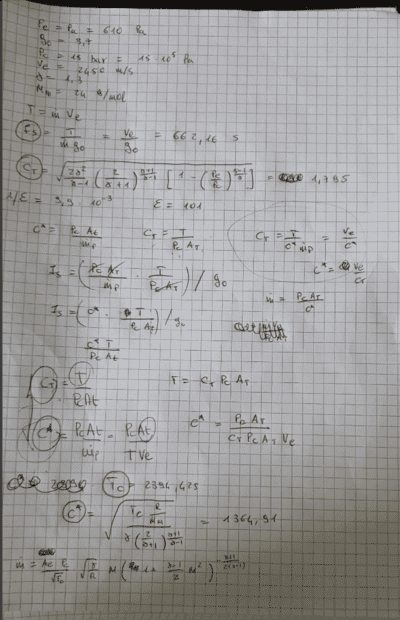 Pe = Pa = 610 Pa
g0 = 3,7
Pc = 15 bar = 15 · 10^5 Pa
Ve = 2450 m/s
γ = 1,3
Mm = 24 g/mol
T = ṁ Ve
Is = T / (ṁ g0) = Ve / g0 = 662,16 s
CT = √( 2γ²/(γ-1) (2/(γ+1))^((γ+1)/(γ-1)) [ 1 - (Pe/Pc)^((γ-1)/γ) ] ) = 1,795
1/ε = 9,9 · 10^-3 ε = 101
c* = Pc At / ṁp CT = T / (Pc At) CT = T / (c* ṁp) = Ve / c*
c* = Ve / CT
Is = ( Pc At / ṁp · T / (Pc At) ) / g0 ṁ = Pc At / c*
Is = ( c* · T / (Pc At) ) / g0
c* T / (Pc At)
CT = T / (Pc At) T = CT Pc At
c* = Pc At / ṁp = Pc At / T Ve c* = Pc At / (CT Pc At Ve)
Tc = 2394,425
c* = √( Tc R/Mm / ( γ (2/(γ+1))^((γ+1)/(γ-1)) ) ) = 1364,91
ṁ = √(γ/R) M ( 1 + (γ-1)/2 M² )^(-(γ+1)/(2(γ-1)))